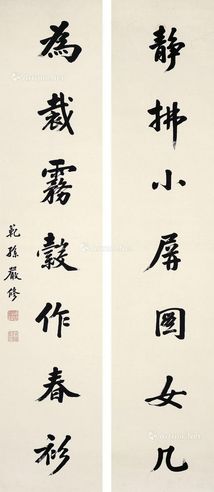 静拂小屏圖女几
為裁霧縠作春衫
範孫嚴修